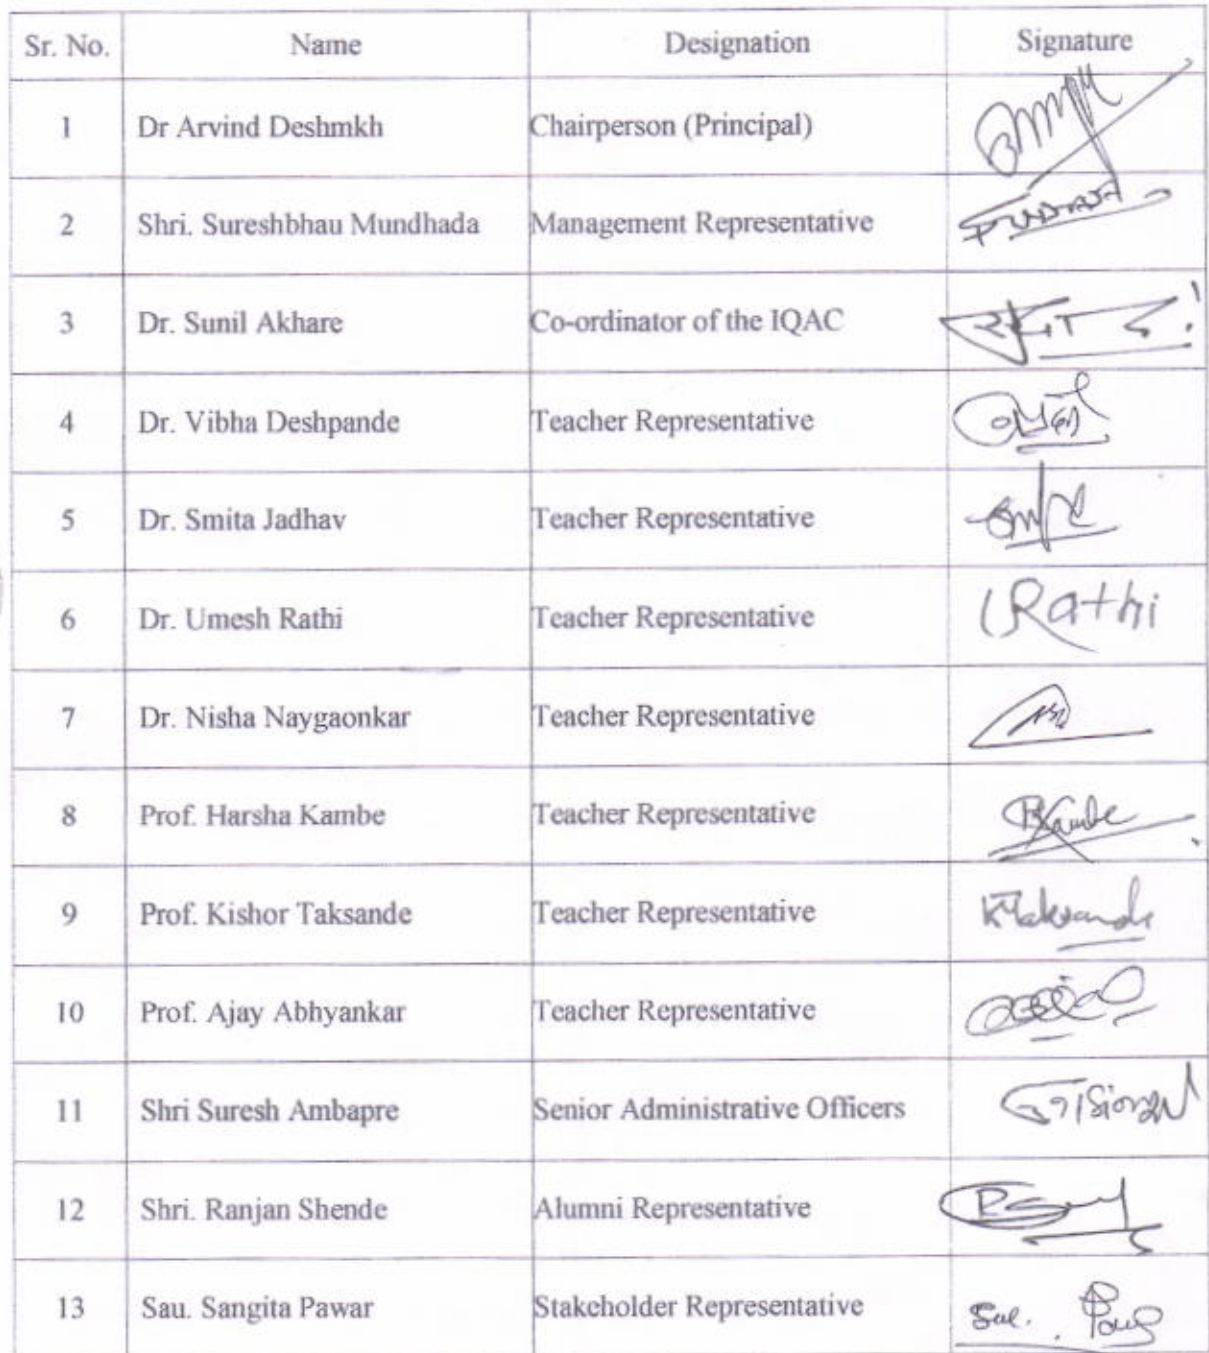 Sr. No. Name Designation Signature
1 Dr Arvind Deshmkh Chairperson (Principal)
2 Shri. Sureshbhau Mundhada Management Representative
3 Dr. Sunil Akhare Co-ordinator of the IQAC
4 Dr. Vibha Deshpande Teacher Representative
5 Dr. Smita Jadhav Teacher Representative
6 Dr. Umesh Rathi Teacher Representative Rathi
7 Dr. Nisha Naygaonkar Teacher Representative
8 Prof. Harsha Kambe Teacher Representative
9 Prof. Kishor Taksande Teacher Representative
10 Prof. Ajay Abhyankar Teacher Representative
11 Shri Suresh Ambapre Senior Administrative Officers
12 Shri. Ranjan Shende Alumni Representative
13 Sau. Sangita Pawar Stakeholder Representative